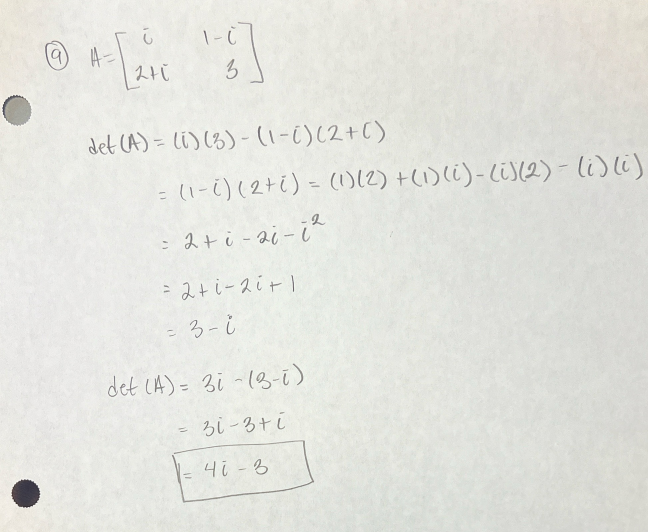 ⑨ A = [ i 1-i
2+i 3 ]
det(A) = (i)(3) - (1-i)(2+i)
= (1-i)(2+i) = (1)(2) + (1)(i) - (i)(2) - (i)(i)
= 2 + i - 2i - i²
= 2 + i - 2i + 1
= 3 - i
det(A) = 3i - (3-i)
= 3i - 3 + i
= 4i - 3